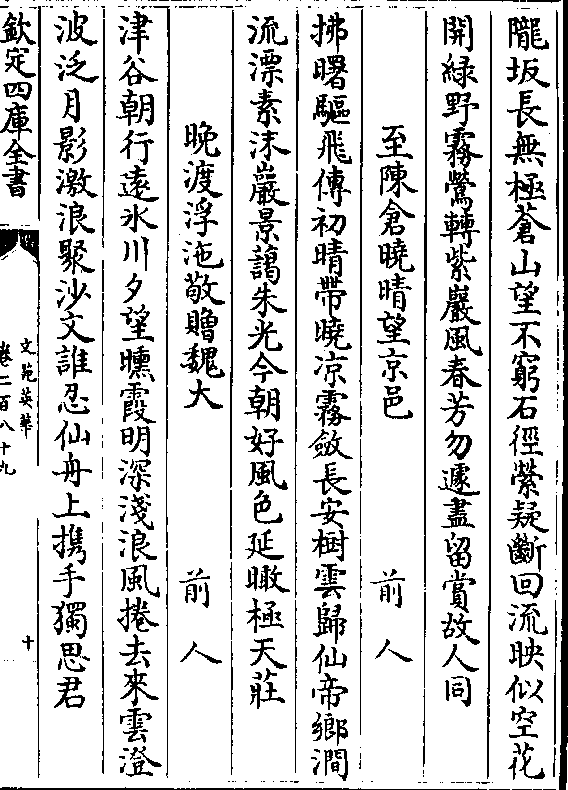 隴坂長無極蒼山望不窮石徑縈疑斷回流映似空花
開綠野霧鶯轉紫巖風春芳勿遽盡留賞故人同
至陳倉曉晴望京邑 前人
拂曙驅飛傳初晴帶曉凉霧斂長安樹雲歸仙帝鄉澗
流漂素沫巖景藹朱光今朝好風色延瞰極天莊
晚渡浮沲敬贈魏大 前人
津谷朝行遠氷川夕望曛霞明深淺浪風捲去來雲澄
波泛月影激浪聚沙文誰忍仙舟上携手獨思君
欽定四庫全書
文苑英華
卷二百八十九
十